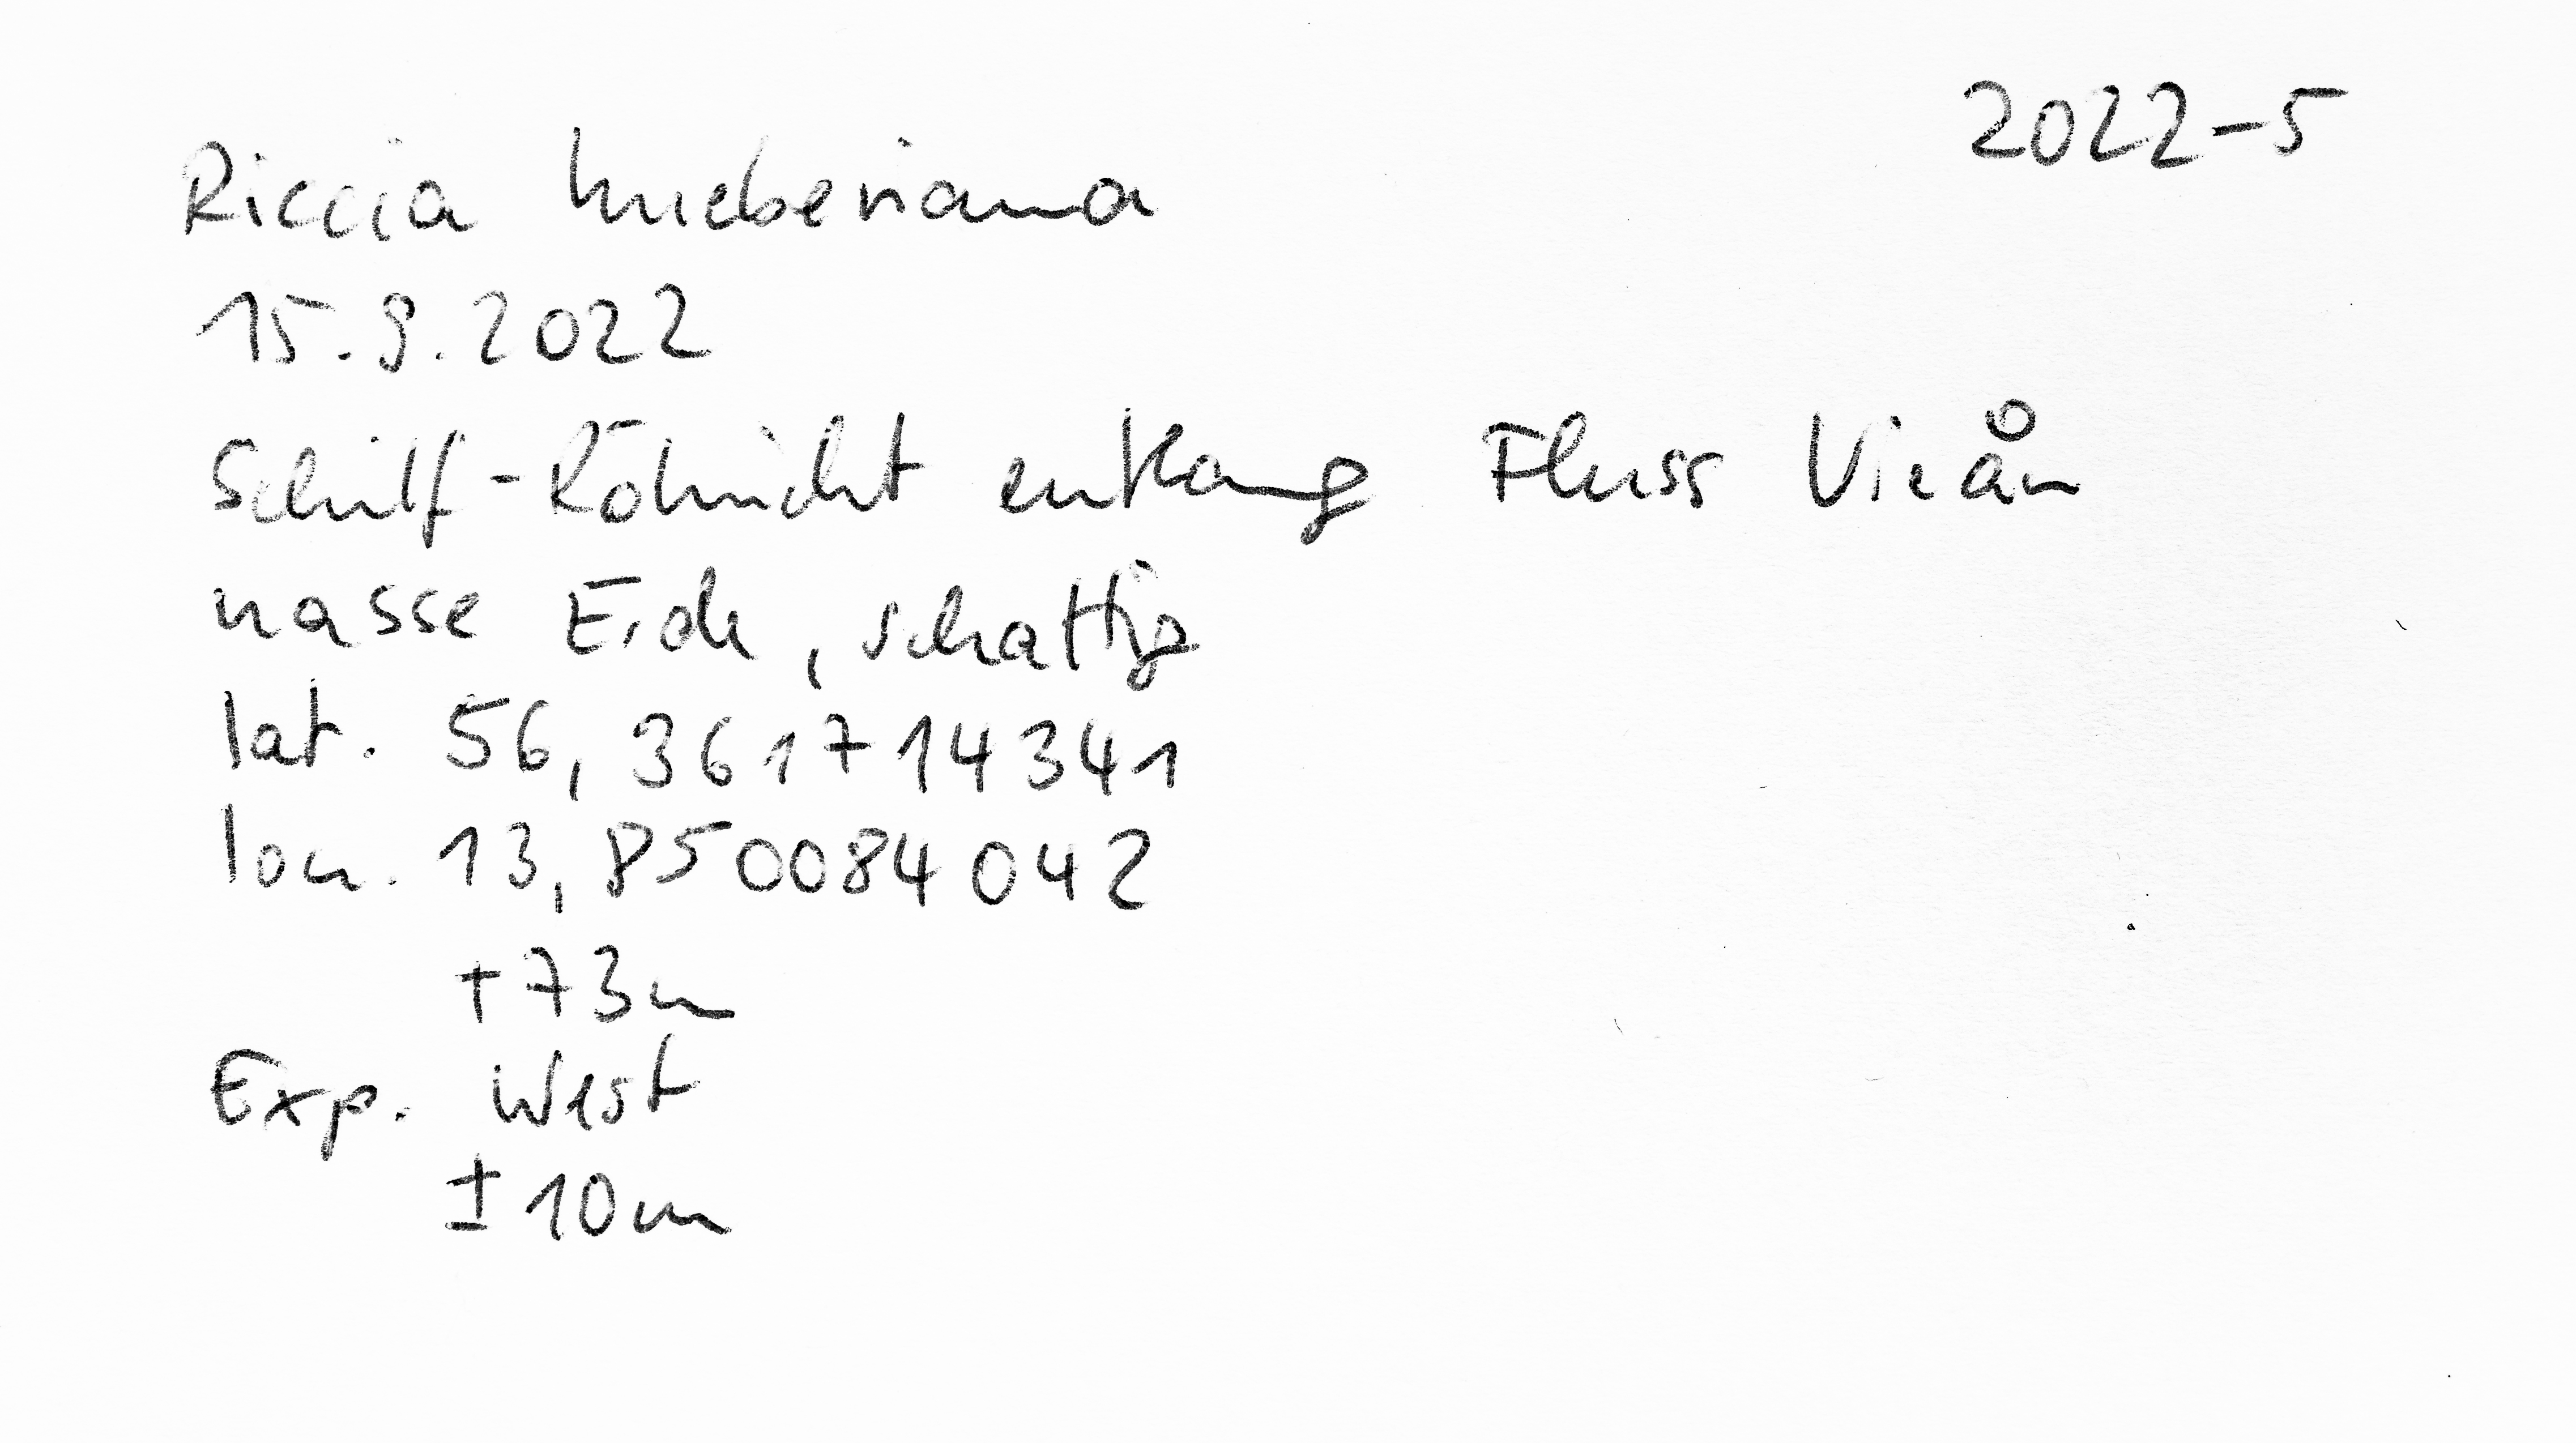 2022-5
Riccia huebeneriana
15.9.2022
Schilf-Röhricht entlang Fluss Vieån
nasse Erde, schattig
lat. 56,361714341
lon. 13,850084042
+73m
Exp. West
±10m